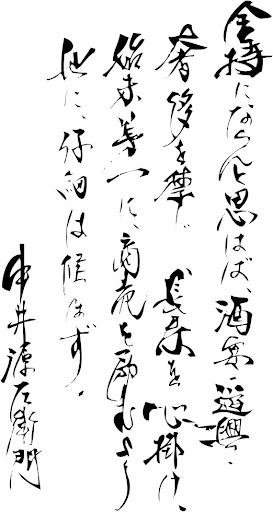 金持にならんと思はば、酒宴・遊興・
奢侈を禁じ、長寿を心掛け、
始末第一に、商売を励むより
他に、仔細は候はず。
中井源左衛門